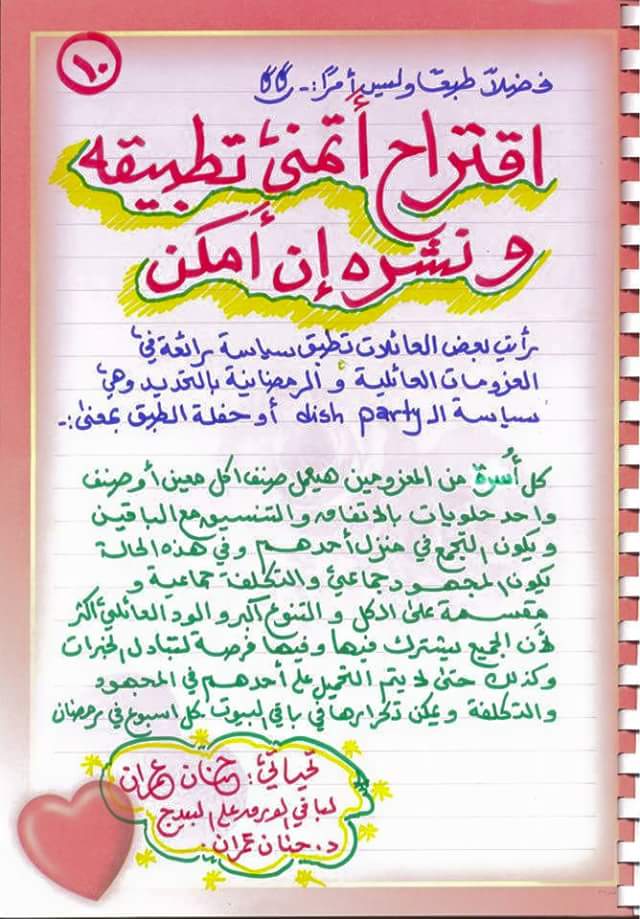 ١٠
فضلاً طبعًا وليس أمرًا:-
اقتراح أتمنى تطبيقه
ونشره إن أمكن
رأيت بعض العائلات تطبق سياسة رائعة في
العزومات العائلية والرمضانية بالتحديد وهي
سياسة الـ dish party أو حفلة الطبق بمعنى:-
كل أسرة من المعزومين هيعمل صنف اكل معين أو صنف
واحد حلويات بالإتفاق والتنسيق مع الباقين
ويكون التجمع في منزل أحدهم وفي هذه الحالة
يكون المجهود جماعي والتكلفة جماعية و
مقسمة على الكل والتنوع أكبر والود العائلي أكثر
لأن الجميع يشترك فيها وفيها فرصة لتبادل الخبرات
وكذلك حتى لا يتم التحميل على أحدهم في المجهود
والتكلفة ويمكن تكرارها في باقي البيوت كل اسبوع في رمضان
تحياتي: حنان عمران
لباقي الورق على البيدج
د. حنان عمران.